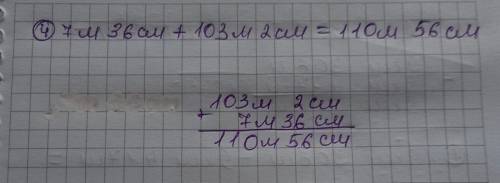 ④ 7м 36см + 103м 2см = 110м 56см
103м 2см
+ 7м 36 см
110м 56 см